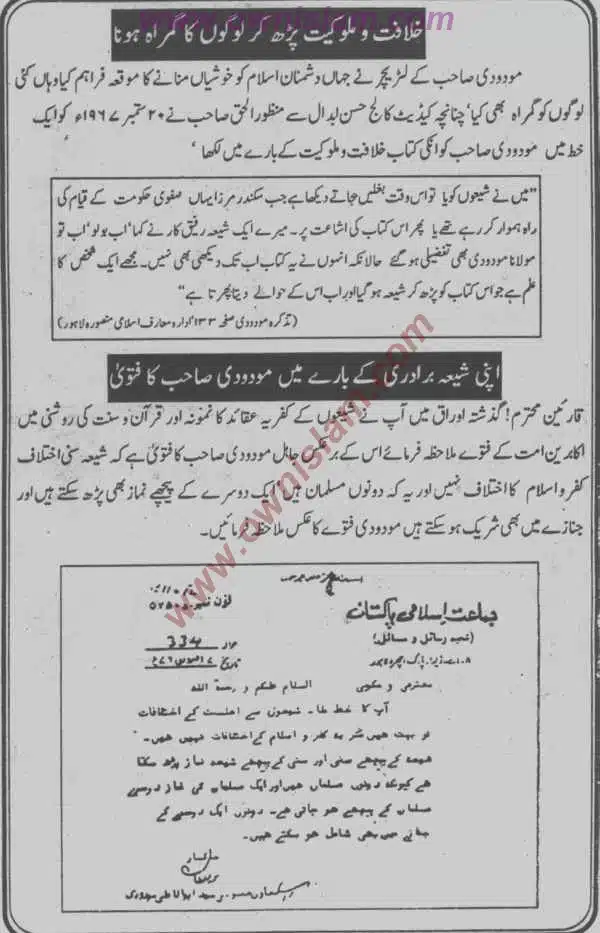 www.ownislam.com
خلافت و ملوکیت پڑھ کر لوگوں کا گمراہ ہونا
مودودی صاحب کے لٹریچر نے جہاں دشمنان اسلام کو خوشیاں منانے کا موقعہ فراہم کیا وہاں کئی
لوگوں کو گمراہ بھی کیا‘ چنانچہ کیڈیٹ کالج حسن ابدال سے منظور الحق صاحب نے ۲۰ ستمبر ۱۹۶۷ء کو ایک
خط میں مودودی صاحب کو انکی کتاب خلافت و ملوکیت کے بارے میں لکھا ‘
”میں نے شیعوں کو یا تو اس وقت بغلیں بجاتے دیکھا ہے جب سکندر مرزا یہاں صفوی حکومت کے قیام کی
راہ ہموار کر رہے تھے یا پھر اس کتاب کی اشاعت پر۔ میرے ایک شیعہ رفیق کار نے کہا ‘اب بولو‘ اب تو
مولانا مودودی بھی تفضیلی ہو گئے حالانکہ انہوں نے یہ کتاب اب تک دیکھی بھی نہیں۔ مجھے ایک شخص کا
علم ہے جو اس کتاب کو پڑھ کر شیعہ ہو گیا اور اب اس کے حوالے دیتا پھرتا ہے“
(تذکرہ مودودی صفحہ ۱۳۳ ادارہ معارف اسلامی منصورہ لاہور)
اپنی شیعہ برادری کے بارے میں مودودی صاحب کا فتویٰ
قارئین محترم! گذشتہ اوراق میں آپ نے شیعوں کے کفریہ عقائد کا نمونہ اور قرآن و سنت کی روشنی میں
اکابرین امت کے فتوے ملاحظہ فرمائے اس کے برعکس جاہل مودودی صاحب کا فتویٰ ہے کہ شیعہ سنی اختلاف
کفر و اسلام کا اختلاف نہیں اور یہ کہ دونوں مسلمان ہیں‘ ایک دوسرے کے پیچھے نماز بھی پڑھ سکتے ہیں اور
جنازے میں بھی شریک ہو سکتے ہیں مودودی فتوے کا عکس ملاحظہ فرمائیں۔
جماعت اسلامی پاکستان
(شعبہ رسائل و مسائل)
فون نمبر
حوالہ 334
تاریخ
محترمی و مکرمی السلام علیکم و رحمۃ اللہ
آپ کا خط ملا۔ شیعوں سے اہلسنت کے اختلافات
تو بہت ہیں مگر یہ کفر و اسلام کے اختلافات نہیں ہیں۔
شیعہ کے پیچھے سنی اور سنی کے پیچھے شیعہ نماز پڑھ سکتا
ہے کیونکہ دونوں مسلمان ہیں اور ایک مسلمان کی نماز دوسرے
مسلمان کے پیچھے ہو جاتی ہے۔ دونوں ایک دوسرے کے
جنازے میں بھی شامل ہو سکتے ہیں۔
خاکسار
www.ownislam.com